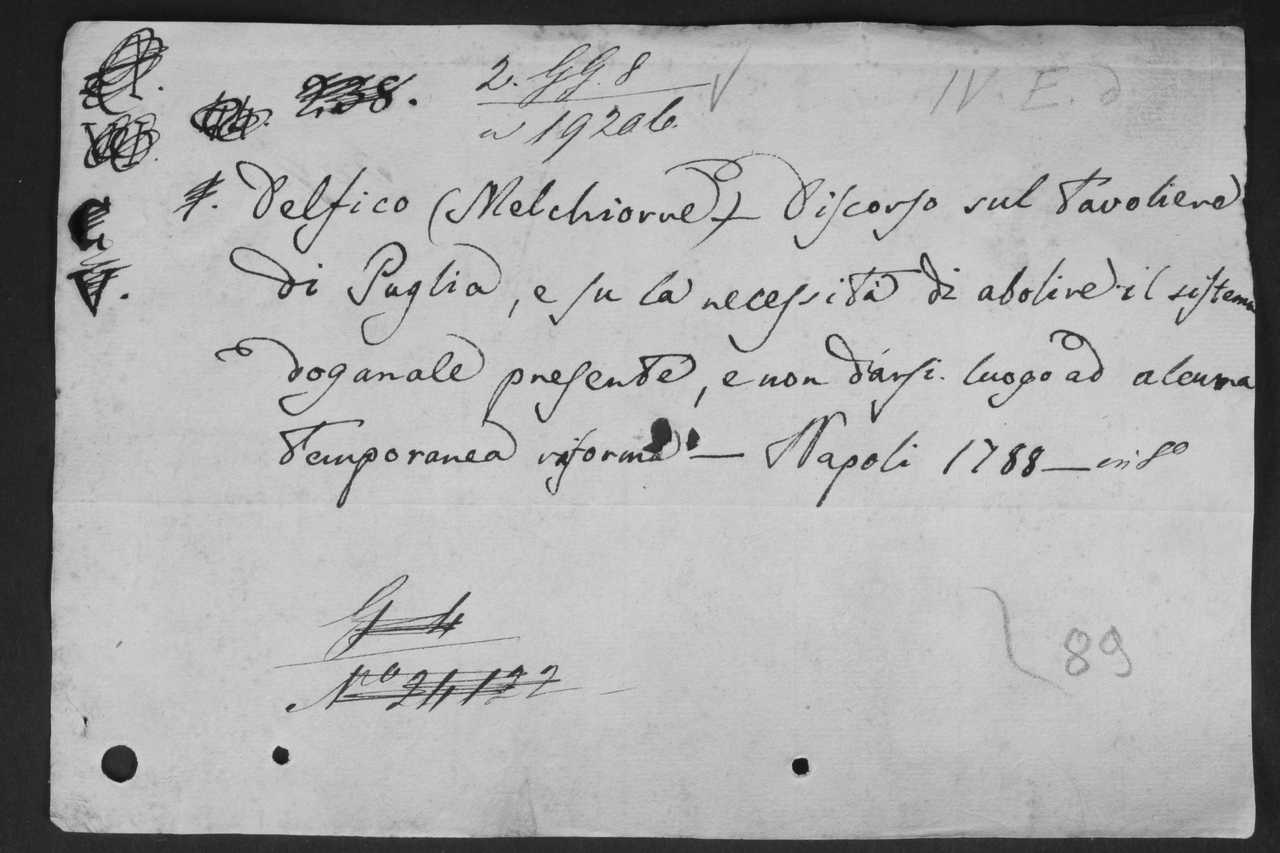 238. 2. GG. 8
n 1920 b.
IV. E. d
Delfico (Melchiorre) Discorso sul Tavoliere
di Puglia, e su la necessità di abolire il sistema
doganale presente, e non darsi luogo ad alcuna
temporanea riforma — Napoli 1788 — in 8º
G 4
Nº 24122
89